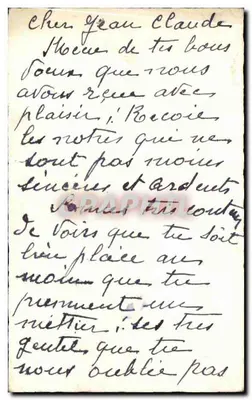 cher Jean Claude
Merci de tes bons
Voeux que nous
avons reçue avec
plaisir; Recoie
les notres qui ne
sont pas moins
sincéres et ardents
Sommes très content
de voire que tu soit
bien place au
moin que tu
prennent un
mettier; ses tres
gentil que tu
nous oublie pas